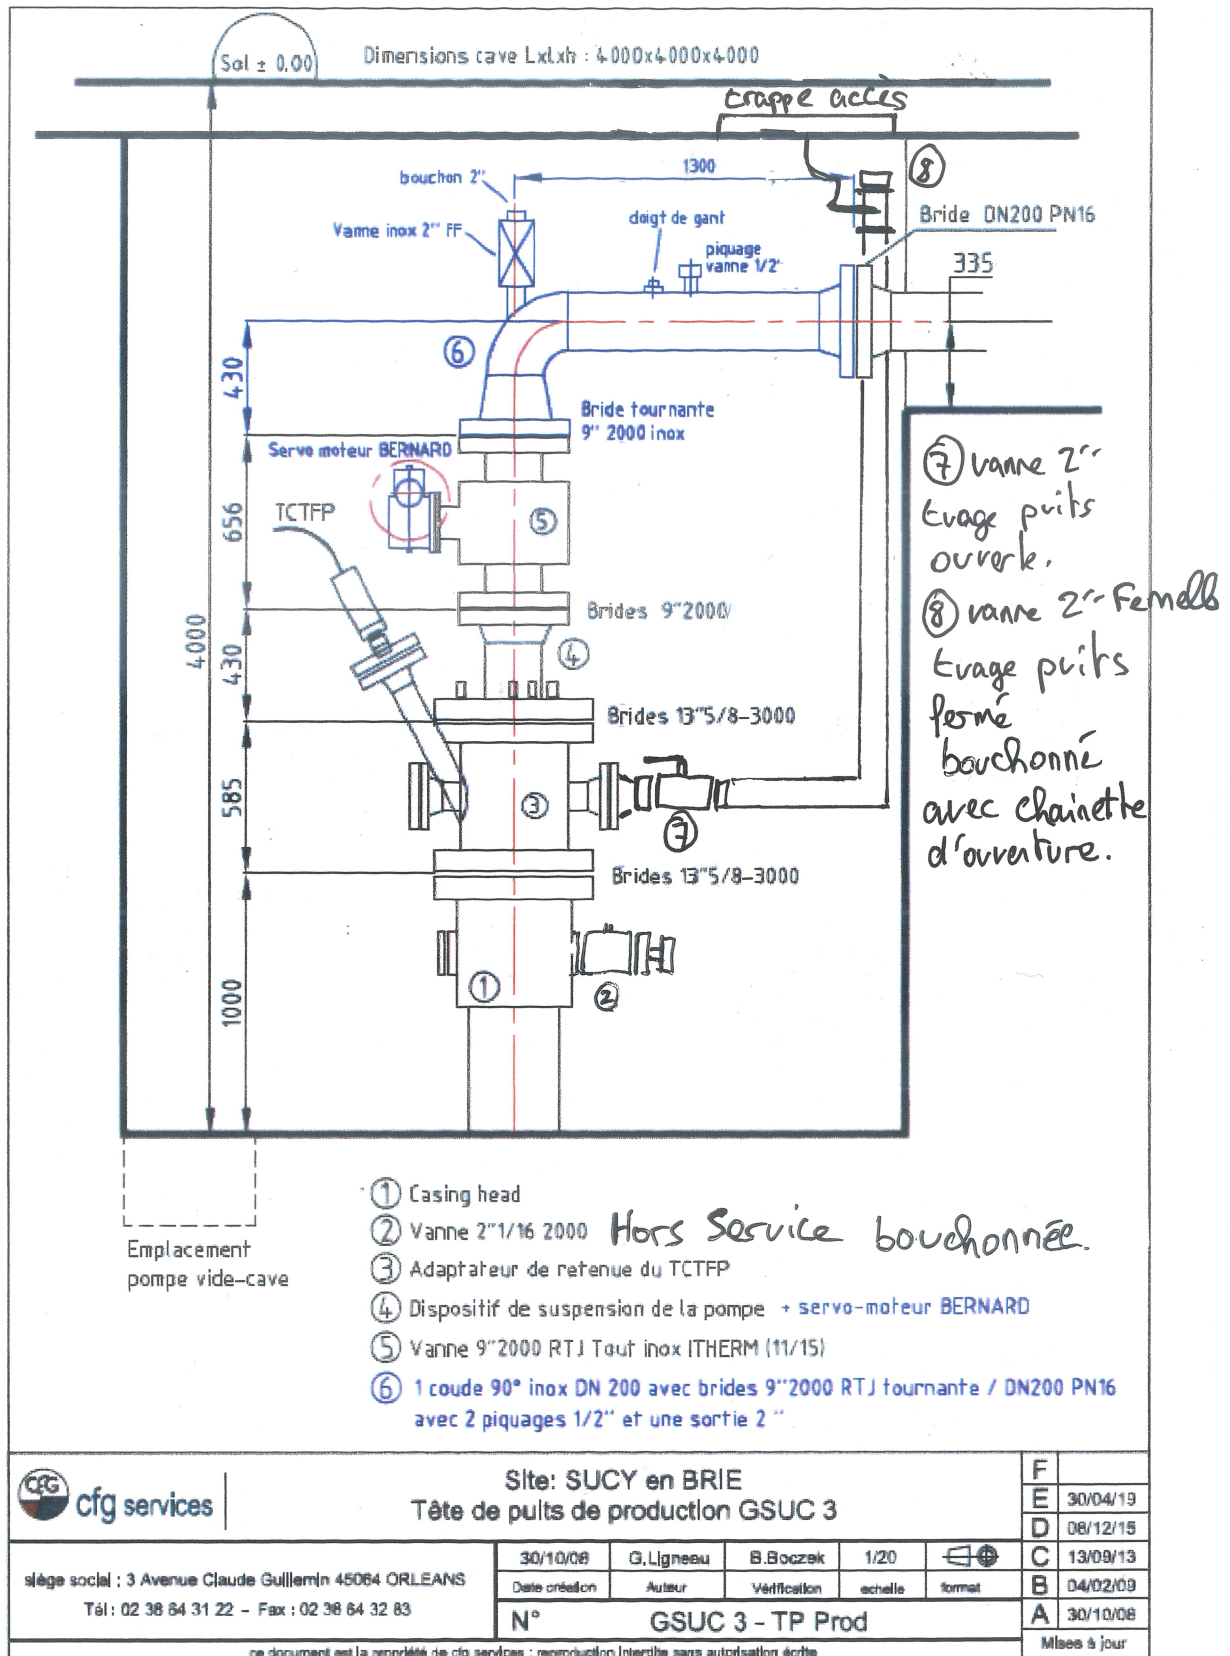 Sol ± 0,00
Dimensions cave LxLxh : 4000x4000x4000
trappe accès
1300
8
bouchon 2"
Vanne inox 2" FF
doigt de gant
piquage
vanne 1/2"
Bride DN200 PN16
335
6
430
Bride tournante
9" 2000 inox
Servo moteur BERNARD
TCTFP
5
656
7 vanne 2"
puits
8 vanne 2" Femelle
puits
fermé
bouchonné
avec chainette
d'ouverture.
Brides 9"2000
4
4000
430
Brides 13"5/8-3000
585
3
7
Brides 13"5/8-3000
1000
1
2
Emplacement
pompe vide-cave
1 Casing head
2 Vanne 2"1/16 2000 Hors Service bouchonnée.
3 Adaptateur de retenue du TCTFP
4 Dispositif de suspension de la pompe + servo-moteur BERNARD
5 Vanne 9"2000 RTJ Tout inox ITHERM (11/15)
6 1 coude 90° inox DN 200 avec brides 9"2000 RTJ tournante / DN200 PN16
avec 2 piquages 1/2" et une sortie 2 "
CFG cfg services
Site: SUCY en BRIE
Tête de puits de production GSUC 3
siège social : 3 Avenue Claude Guillemin 45064 ORLEANS
Tél : 02 38 64 31 22 - Fax : 02 38 64 32 83
30/10/08 G.Ligneau B.Boczek 1/20
Date création Auteur Vérification echelle format
N° GSUC 3 - TP Prod
F
E 30/04/19
D 08/12/15
C 13/09/13
B 04/02/09
A 30/10/08
Mises à jour
ce document est la propriété de cfg services : reproduction interdite sans autorisation écrite